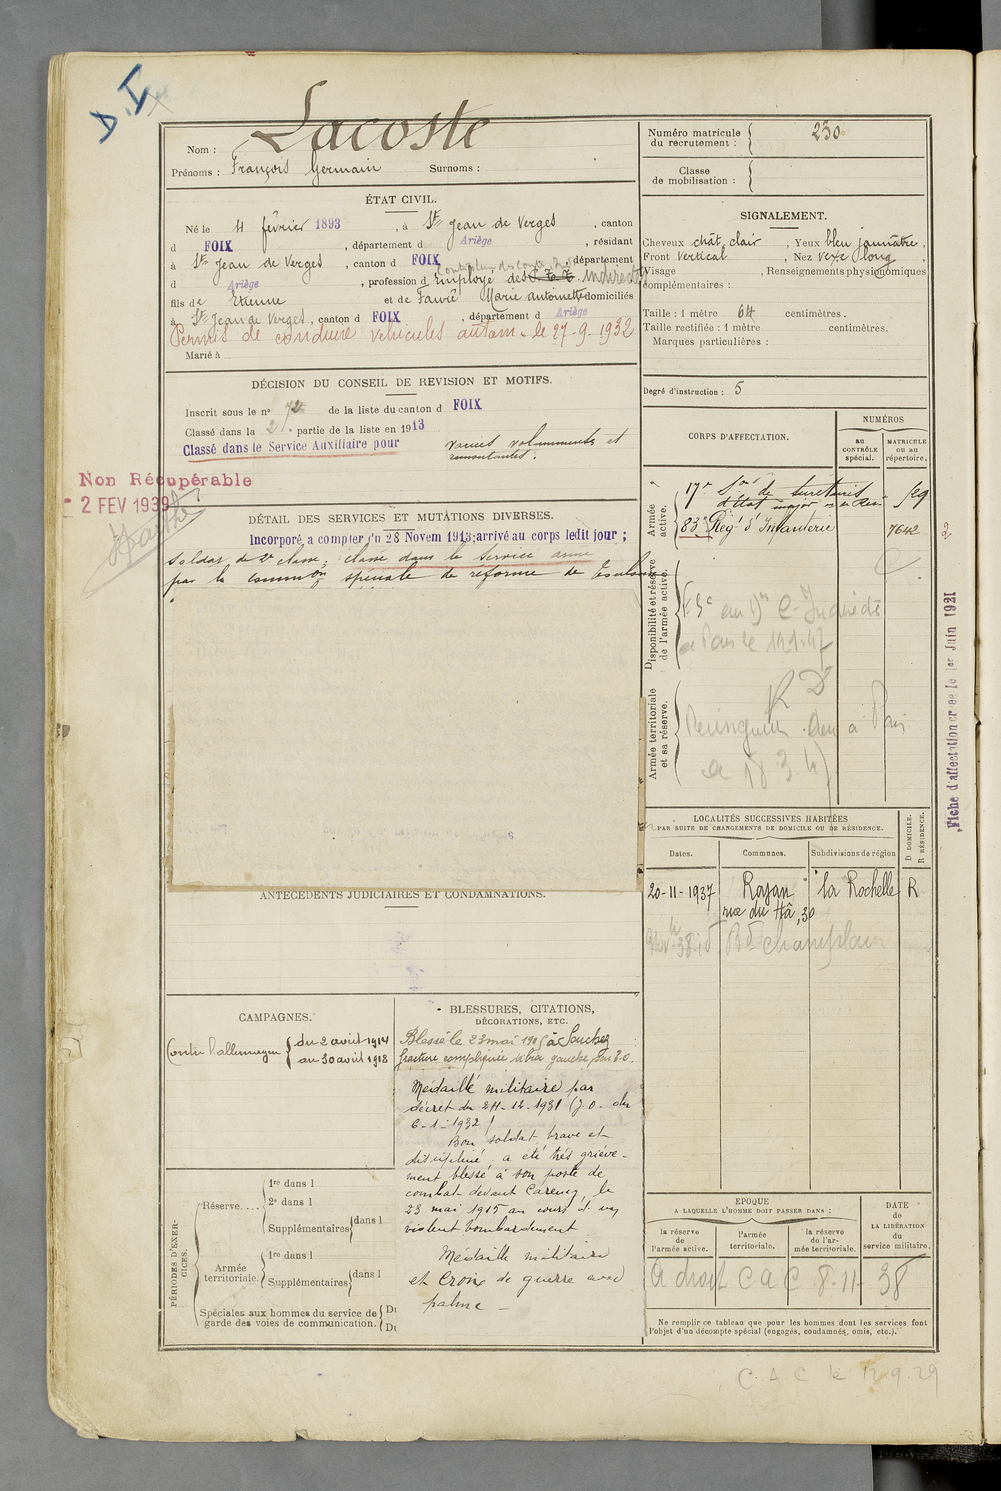 D.I
Nom : Lacoste
Prénoms : François Germain Surnoms :
ÉTAT CIVIL.
Né le 4 février 1893, à St Jean de Verges, canton
d FOIX, département d Ariège, résidant
à St Jean de Verges, canton d FOIX, département
d Ariège, profession d employé des indirectes
fils de Etienne et de Faure Marie antoinette domiciliés
à St Jean de Verges, canton d FOIX, département d Ariège
Permis de conduire vehicules autom. le 27-9-1932
Marié à
DÉCISION DU CONSEIL DE REVISION ET MOTIFS.
Inscrit sous le n° 72 de la liste du canton d FOIX
Classé dans la 2e. partie de la liste en 1913
Classé dans le Service Auxiliaire pour varices volumineuses et
remontantes.
Non Récupérable
- 2 FEV 1939
DÉTAIL DES SERVICES ET MUTATIONS DIVERSES.
Incorporé à compter du 28 Novem 1913; arrivé au corps ledit jour ;
soldat de 2e classe; classé dans le service armé
par la common spéciale de réforme de Toulouse
ANTÉCÉDENTS JUDICIAIRES ET CONDAMNATIONS.
CAMPAGNES.
Contre l'allemagne { du 2 août 1914
au 30 août 1918
BLESSURES, CITATIONS,
DÉCORATIONS, ETC.
Blessé le 23 mai 1915 à Souchez
fracture compliquée tibia gauche
Médaillé militaire par
décret du 24-12-1931 (J.O. du
6-1-1932)
Bon soldat brave et
discipliné a été très griève-
ment blessé à son poste de
combat devant Carency, le
23 mai 1915 au cours d'un
violent bombardement
Médaille militaire
et Croix de guerre avec
palme -
PÉRIODES D'EXER-
CICES.
Réserve....
1re dans l
2e dans l
Supplémentaires dans l
Armée
territoriale.
1re dans l
Supplémentaires dans l
Spéciales aux hommes du service de
garde des voies de communication.
Du
Du
Numéro matricule
du recrutement : 230
Classe
de mobilisation :
SIGNALEMENT.
Cheveux chât. clair, Yeux bleu jaunâtre.
Front Vertical, Nez vexe long
Visage, Renseignements physionomiques
complémentaires :
Taille : 1 mètre 64 centimètres.
Taille rectifiée : 1 mètre centimètres.
Marques particulières :
Degré d'instruction : 5
CORPS D'AFFECTATION.
NUMÉROS
au
CONTRÔLE
spécial.
MATRICULE
ou au
répertoire.
Armée
active.
17e Son de Secrétaires
d'état major 529
83e Régt d'Infanterie 7642
Disponibilité et réserve
de l'armée active.
Armée territoriale
et sa réserve.
Fiche d'affectation créée le 1er Juin 1921
LOCALITÉS SUCCESSIVES HABITÉES
PAR SUITE DE CHANGEMENTS DE DOMICILE OU DE RÉSIDENCE.
D DOMICILE.
R RÉSIDENCE.
Dates. Communes. Subdivisions de région
20-11-1937 Royan La Rochelle R
rue du Hâ, 30
Bd Champlain
EPOQUE
A LAQUELLE L'HOMME DOIT PASSER DANS :
la réserve
de
l'armée active.
l'armée
territoriale.
la réserve
de l'ar-
mée territoriale.
DATE
de
LA LIBÉRATION
du
service militaire.
a droit C A C 8-11-38
Ne remplir ce tableau que pour les hommes dont les services font
l'objet d'un décompte spécial (engagés, condamnés, omis, etc.).
C. A. C le 12.9.29